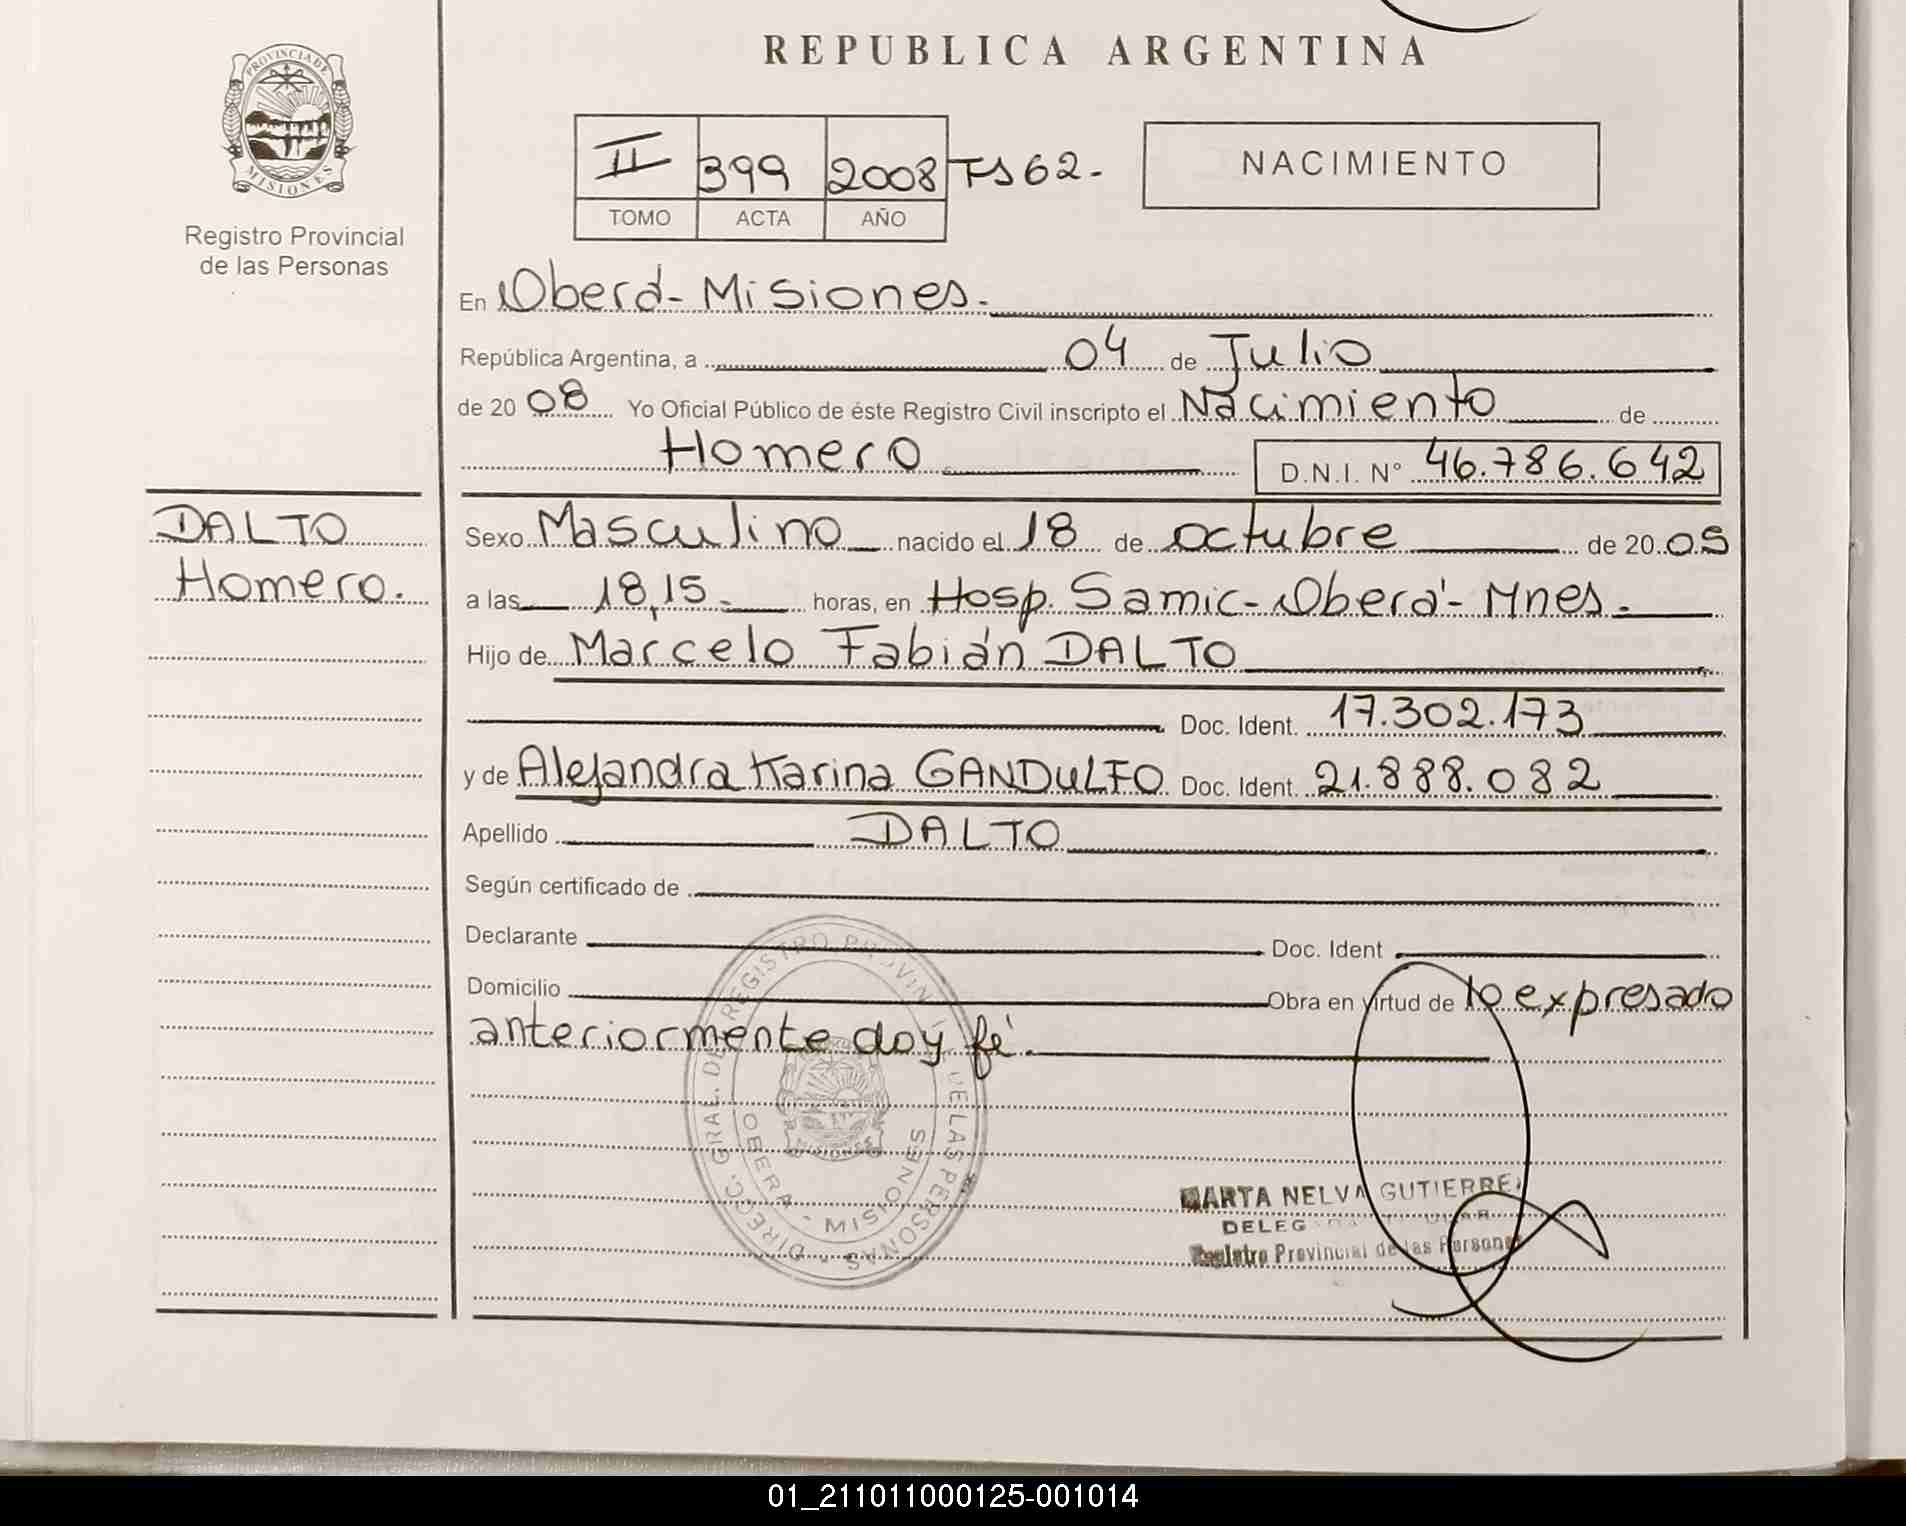 REPUBLICA ARGENTINA
PROVINCIA DE MISIONES
Registro Provincial
de las Personas
II 399 2008 Fs 62-
TOMO ACTA AÑO
NACIMIENTO
En Oberá- Misiones.
República Argentina, a 04 de Julio
de 20 08 Yo Oficial Público de éste Registro Civil inscripto el Nacimiento de
Homero D.N.I. N° 46.786.642
DALTO
Homero.
Sexo Masculino nacido el 18 de octubre de 20 05
a las 18,15 horas, en Hosp. Samic- Oberá- Mnes.
Hijo de Marcelo Fabián DALTO
Doc. Ident. 17.302.173
y de Alejandra Karina GANDULFO Doc. Ident. 21.888.082
Apellido DALTO
Según certificado de
Declarante Doc. Ident
Domicilio Obra en virtud de lo expresado
anteriormente doy fé.
DIRECC. GRAL. DEL REGISTRO PROVINCIAL DE LAS PERSONAS
OBERA - MISIONES
MISIONES
MARTA NELVA GUTIERRE
Registro Provincial de las Personas
01_211011000125-001014